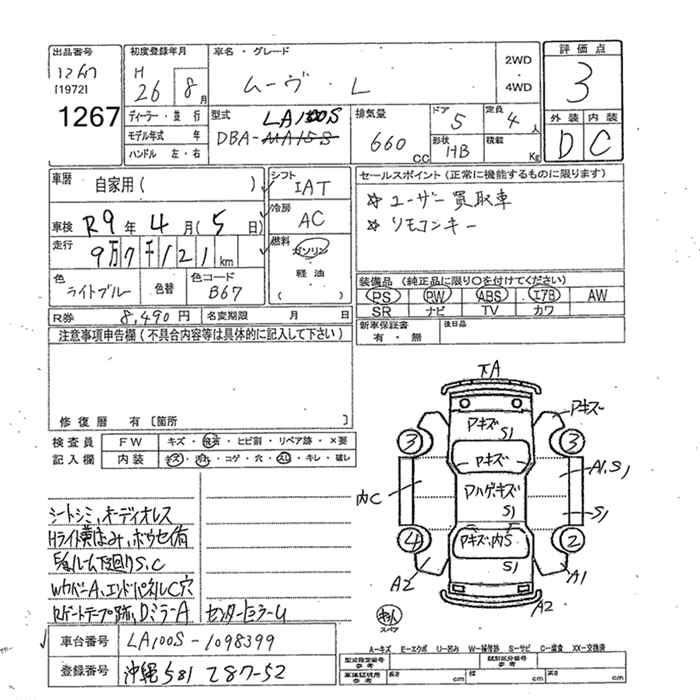 出品番号
1267
[1972]
1267
初度登録年月
H
26 8月
ディーラー・並行
モデル年式 年
ハンドル 左・右
車名・グレード
ムーヴ・L
2WD
4WD
型式
LA100S
DBA-
排気量
660 CC
ドア
5
定員
4人
形状
HB
積載
Kg
評価点
3
外装 内装
D C
車歴
自家用(
車検 R9年 4月(5日)
走行
9万7千121km
色
ライトブル
色替
色コード
B67
シフト
IAT
冷房
AC
燃料
ガソリン
軽油
( )
セールスポイント(正常に機能するものに限ります)
☆ユーザー買取車
☆リモコンキー
装備品(純正品に限り〇を付けてください)
PS PW ABS エアB AW
SR ナビ TV カワ
新車保証書
有・無
後日品
R券 8,490円
名変期限 月 日
注意事項申告欄(不具合内容等は具体的に記入して下さい)
修復歴 有[箇所 ]
検査員
記入欄
FW キズ・飛石・ヒビ割・リペア跡・×要
内装 キズ・汚れ・コゲ・穴・スレ・キレ・破レ
シートシミ、オーディオレス
Hライト黄ばみ、ホウセイ有
ルーム下回りS、C
WカバーA、エンドパネルC穴
Rゲートテープ跡、DミラーA
車台番号 LA100S-1098399
登録番号 沖縄 581 て87-52
下A
Aキズ
Aキズ
S1
Aキズ
3 3
内C
A1,S1
AハゲキズS1
S1
4 2
Aキズ、内S
S1
A2
A1
A2
スペア
A-キズ E-エクボ U-凹み W-補修跡 S-サビ C-腐食 XX-交換済
型式指定番号
参考
類別区分番号
参考
車庫証明用
参考
長さ cm
幅 cm
高さ cm